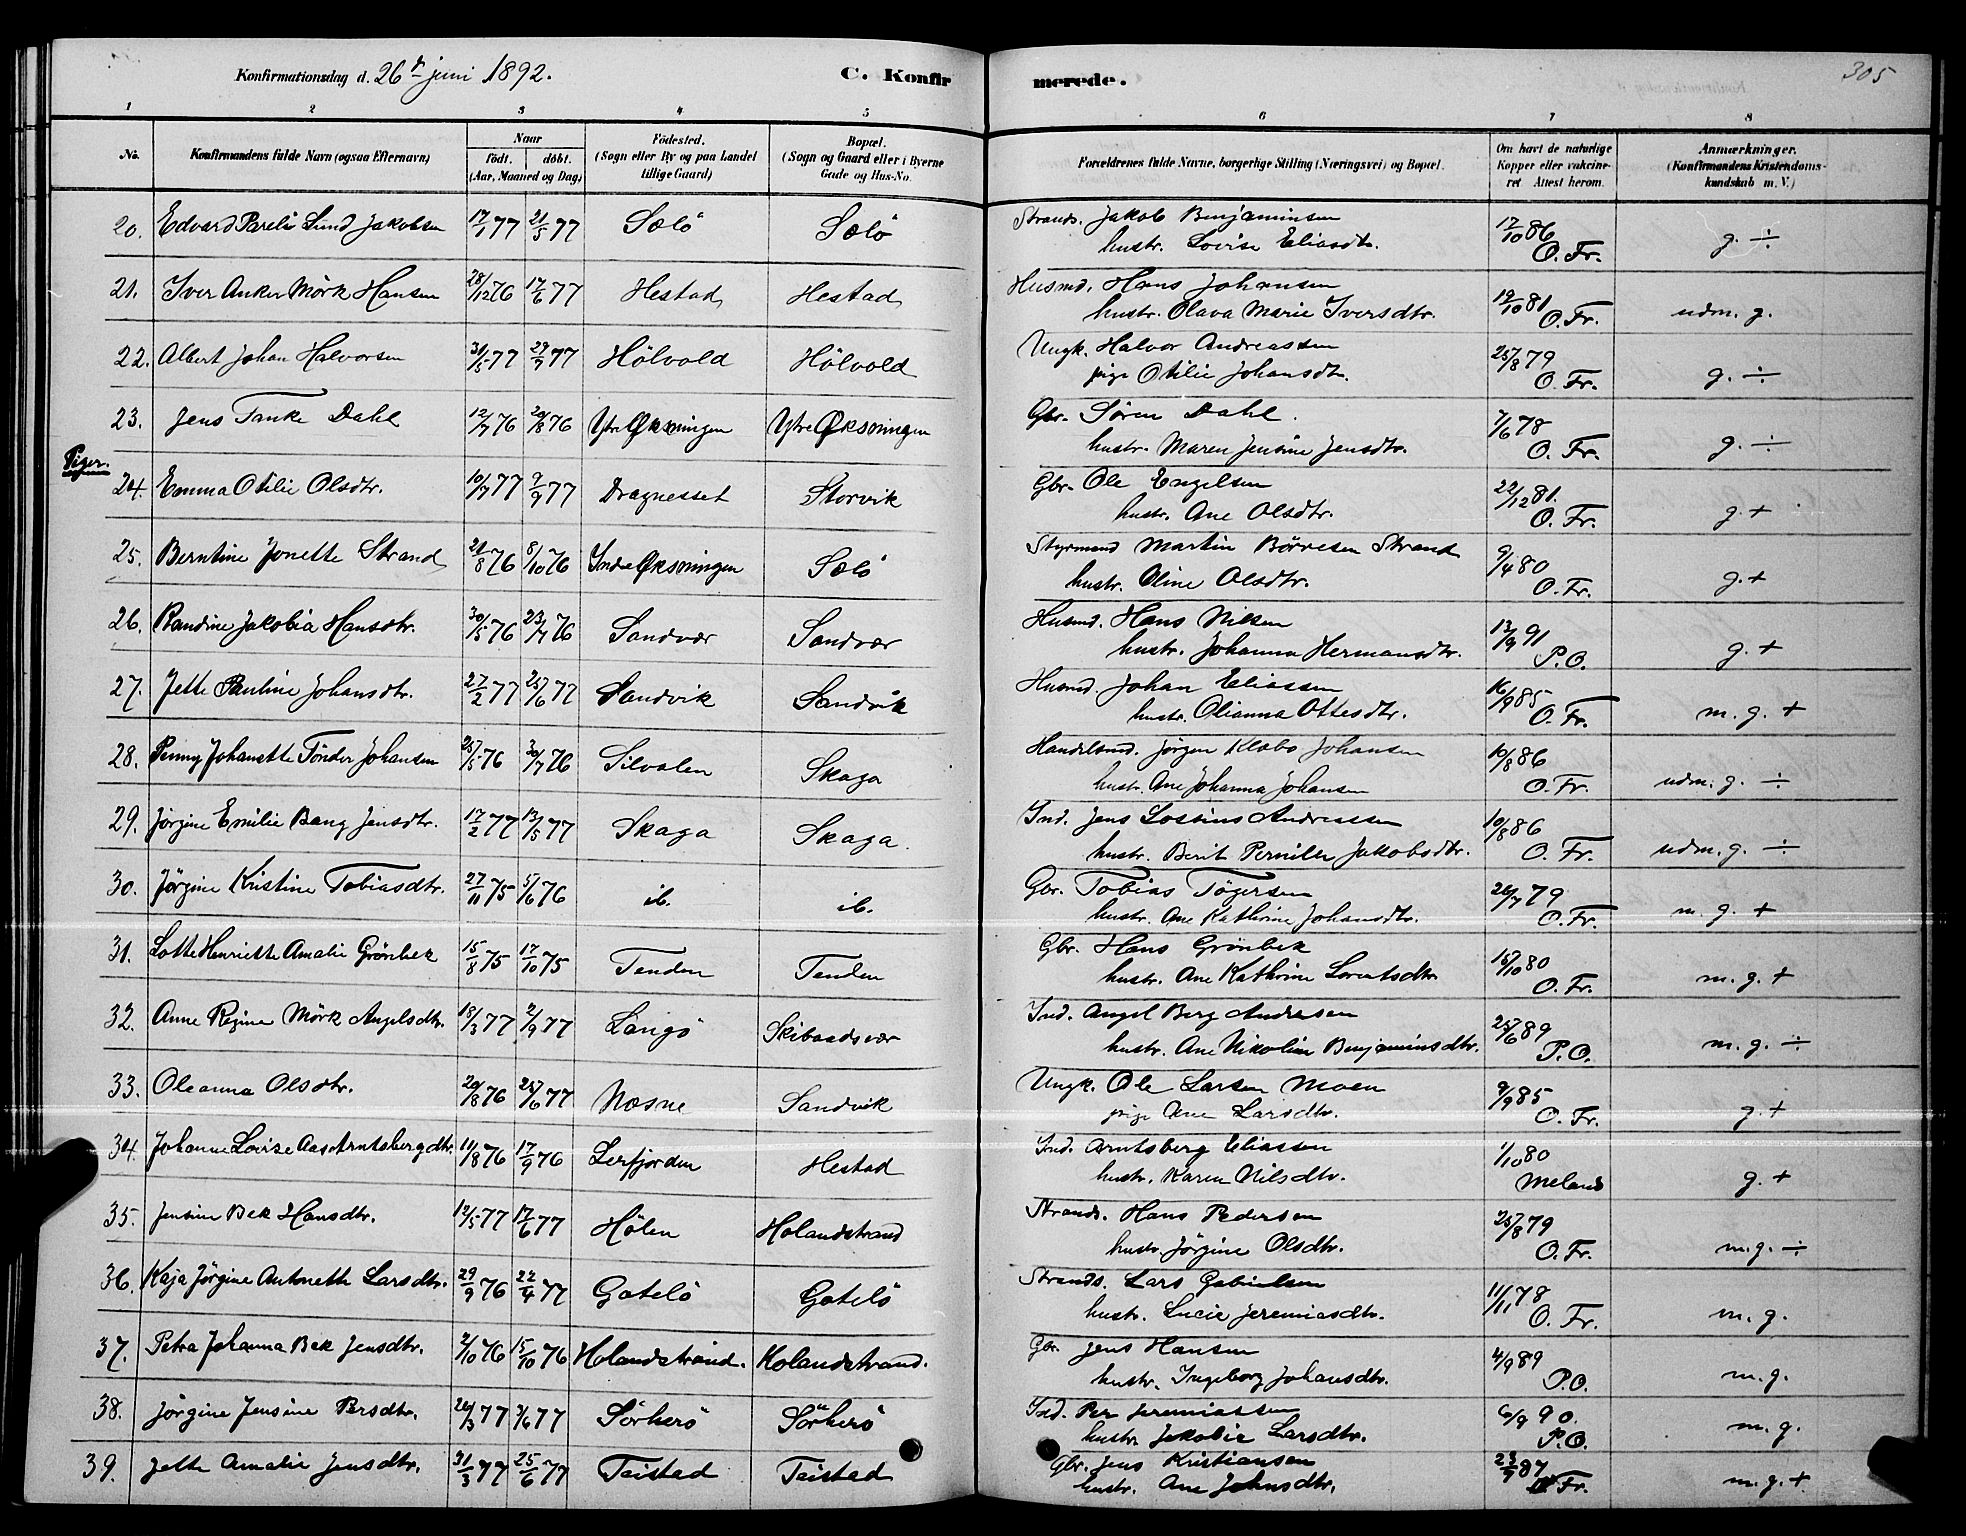 Konfirmationsdag d. 26de juni 1892. C. Konfirmerede. 305
1 2 3 4 5 6 7 8
No. Konfirmandens fulde Navn (ogsaa Efternavn) Naar födt. döbt. (Aar, Maaned og Dag) Födested. (Sogn eller By og paa Landet tillige Gaard) Bopæl. (Sogn og Gaard eller i Byerne Gade og Hus-No. Forældrenes fulde Navne, borgerlige Stilling (Næringsvei) og Bopæl. Om havt de naturlige Kopper eller vakcineret. Attest herom. Anmærkninger. (Konfirmandens Kristendomskundskab m. V.)
20. Edvard Parelii Lund Jakobsen 17/1 77 21/5 77 Sölö Sölö Strands. Jakob Benjaminsen 17/10 86
hustr. Lovise Eliasdtr. O. Fr. g. ÷
21. Iver Anker Mörk Hansen 28/12 76 17/6 77 Hestad Hestad Husmd. Hans Johansen 19/10 81
hustr. Olava Marie Iversdtr. O. Fr. udm. g.
22. Albert Johan Halvorsen 31/5 77 29/7 77 Hölvold Hölvold Ungk. Halvor Andreassen 25/8 79
pige Otilie Johansdtr. O. Fr. g. ÷
23. Jens Tanke Dahl 12/7 76 20/8 76 Ytre Øksningen Ytre Øksningen Gbr. Sören Dahl. 7/6 78
hustr. Maren Jensine Jensdtr. O. Fr. g. ÷
Piger.
24. Emma Otilie Olsdtr. 10/7 77 2/9 77 Dragnesset Storvik Gbr. Ole Engelsen 22/12 81.
hustr. Ane Olsdtr. O. Fr. g. +
25. Berntine Jonette Strand 21/8 76 8/10 76 Indre Øksningen Sölö Styrmand Martin Börresen Strand 9/4 80
hustr. Oline Olsdtr. O. Fr. g. +
26. Randine Jakobia Hansdtr. 30/5 76 23/7 76 Sandvær Sandvær Husmd. Hans Nilsen 13/9 91
hustr. Johanna Hermansdtr. P.O. g. +
27. Jette Pauline Johansdtr. 27/2 77 25/6 77 Sandvik Sandvik Husmd. Johan Eliassen 16/9 85
hustr. Olianna Ottesdtr. O. Fr. m. g. +
28. Penny Johanette Tönder Johansen 25/5 76 30/7 76 Silvalen Skaga Handelsmd. Jörgen Klæbo Johansen 10/8 86
hustr. Ane Johanna Johansen O. Fr. udm. g. ÷
29. Jörgine Emilie Bang Jensdtr. 17/2 77 13/5 77 Skaga Skaga. Ind. Jens Andreassen 10/8 86
hustr. Berit Pernille Jakobsdtr. O. Fr. udm. g. ÷
30. Jörgine Kristine Tobiasdtr. 27/11 75 5/6 76 ib. ib. Gbr. Tobias Tögersen 26/7 79
hustr. Ane Kathrine Johansdtr. O. Fr. m. g. +
31. Lotte Henriette Amalie Grönbek 15/8 75 17/10 75 Tenden Tenden Gbr. Hans Grönbek 15/10 80
hustr. Ane Kathrine Lorentsdtr. O. Fr. m. g. +
32. Anne Regine Mörk Angelsdtr. 18/3 77 2/9 77 Langö Skibaadsvær Ind. Angel Berg Andresen 25/6 89
hustr. Ane Nikoline Benjaminsdtr. P.O. m. g. ÷
33. Oleanna Olsdtr. 20/8 76 25/6 77 Næsne Sandvik Ungk. Ole Larsen Moen 9/9 85
pige Ane Larsdtr. O. Fr. g. +
34. Johanne Lovise Aas Arntsbergdtr. 11/8 76 17/9 76 Leirfjorden Hestad Ind. Arntsberg Eliassen 1/10 80
hustr. Karen Nilsdtr. Meland g. +
35. Jensine Bek Hansdtr. 12/5 77 17/6 77 Hölen Holandstrand Strands. Hans Pedersen 25/8 79
hustr. Jörgine Olsdtr. O. Fr. m. g. ÷
36. Kaja Jörgine Antonette Larsdtr. 29/9 76 22/4 77 Gatelö Gatelö Strands. Lars Gabrielsen 11/11 78
hustr. Lucie Jeremiasdtr. O. Fr. m. g.
37. Petra Johanna Bek Jensdtr. 2/10 76 15/10 76 Holandstrand. Holandstrand. Gbr. Jens Hansen 4/9 89
hustr. Ingeborg Johansdtr. P.O. m. g.
38. Jörgine Jensine Persdtr. 26/3 77 3/6 77 Sörherö Sörherö Ind. Per Jeremiassen 6/9 90.
hustr. Jakobie Larsdtr. P.O. m. g.
39. Jette Amalie Jensdtr. 31/3 77 25/6 77 Teistad Teistad Gbr. Jens Kristiansen 23/9 87
hustr. Ane Johnsdtr. Fr. m. g. +